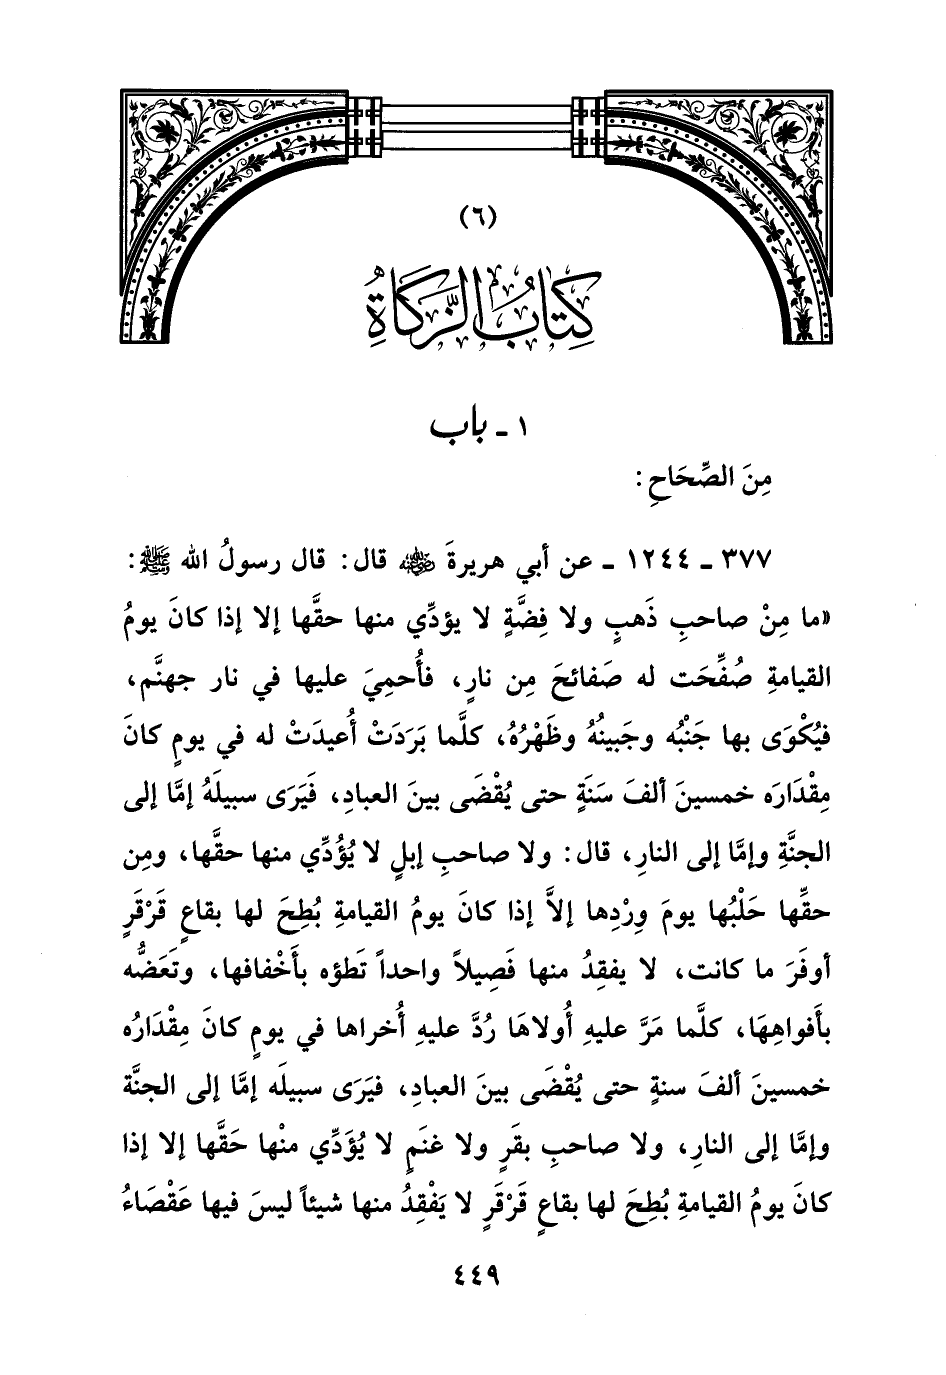 (٦)
كِتَابُ الزَّكَاةِ
١ ـ باب
مِنَ الصِّحَاحِ :
٣٧٧ ـ ١٢٤٤ ـ عن أبي هريرةَ ﷺ قال : قال رسولُ الله ﷺ :
«ما مِنْ صاحبِ ذَهبٍ ولا فِضَّةٍ لا يؤدِّي منها حقَّها إلا إذا كانَ يومُ
القيامةِ صُفِّحَت له صَفائحَ مِن نارٍ، فأُحمِيَ عليها في نار جهنَّم،
فيُكْوَى بها جَنْبُه وجَبينُهُ وظَهْرُهُ، كلَّما بَرَدَتْ أُعيدَتْ له في يومٍ كانَ
مِقْدَارَه خمسينَ ألفَ سَنَةٍ حتى يُقْضَى بينَ العبادِ، فَيَرَى سبيلَهُ إمَّا إلى
الجنَّةِ وإمَّا إلى النارِ، قال : ولا صاحبِ إبلٍ لا يُؤُدِّي منها حقَّها، ومِن
حقِّها حَلْبُها يومَ وِرْدِها إلاَّ إذا كانَ يومُ القيامةِ بُطِحَ لها بقاعٍ قَرْقَرٍ
أوفَرَ ما كانت، لا يفقِدُ منها فَصِيلاً واحداً تَطؤه بأَخْفافها، وتَعَضُّه
بأَفواهِهَا، كلَّما مَرَّ عليهِ أُولاهَا رُدَّ عليهِ أُخراها في يومٍ كانَ مِقْدَارُه
خمسينَ ألفَ سنةٍ حتى يُقْضَى بينَ العبادِ، فيَرَى سبيلَه إمَّا إلى الجنَّة
وإمَّا إلى النارِ، ولا صاحبِ بقَرٍ ولا غنَمٍ لا يُؤَدِّي منْها حَقَّها إلا إذا
كانَ يومُ القيامةِ بُطِحَ لها بقاعٍ قَرْقَرٍ لا يَفْقِدُ منها شيئاً ليسَ فيها عَقْصَاءُ
٤٤٩